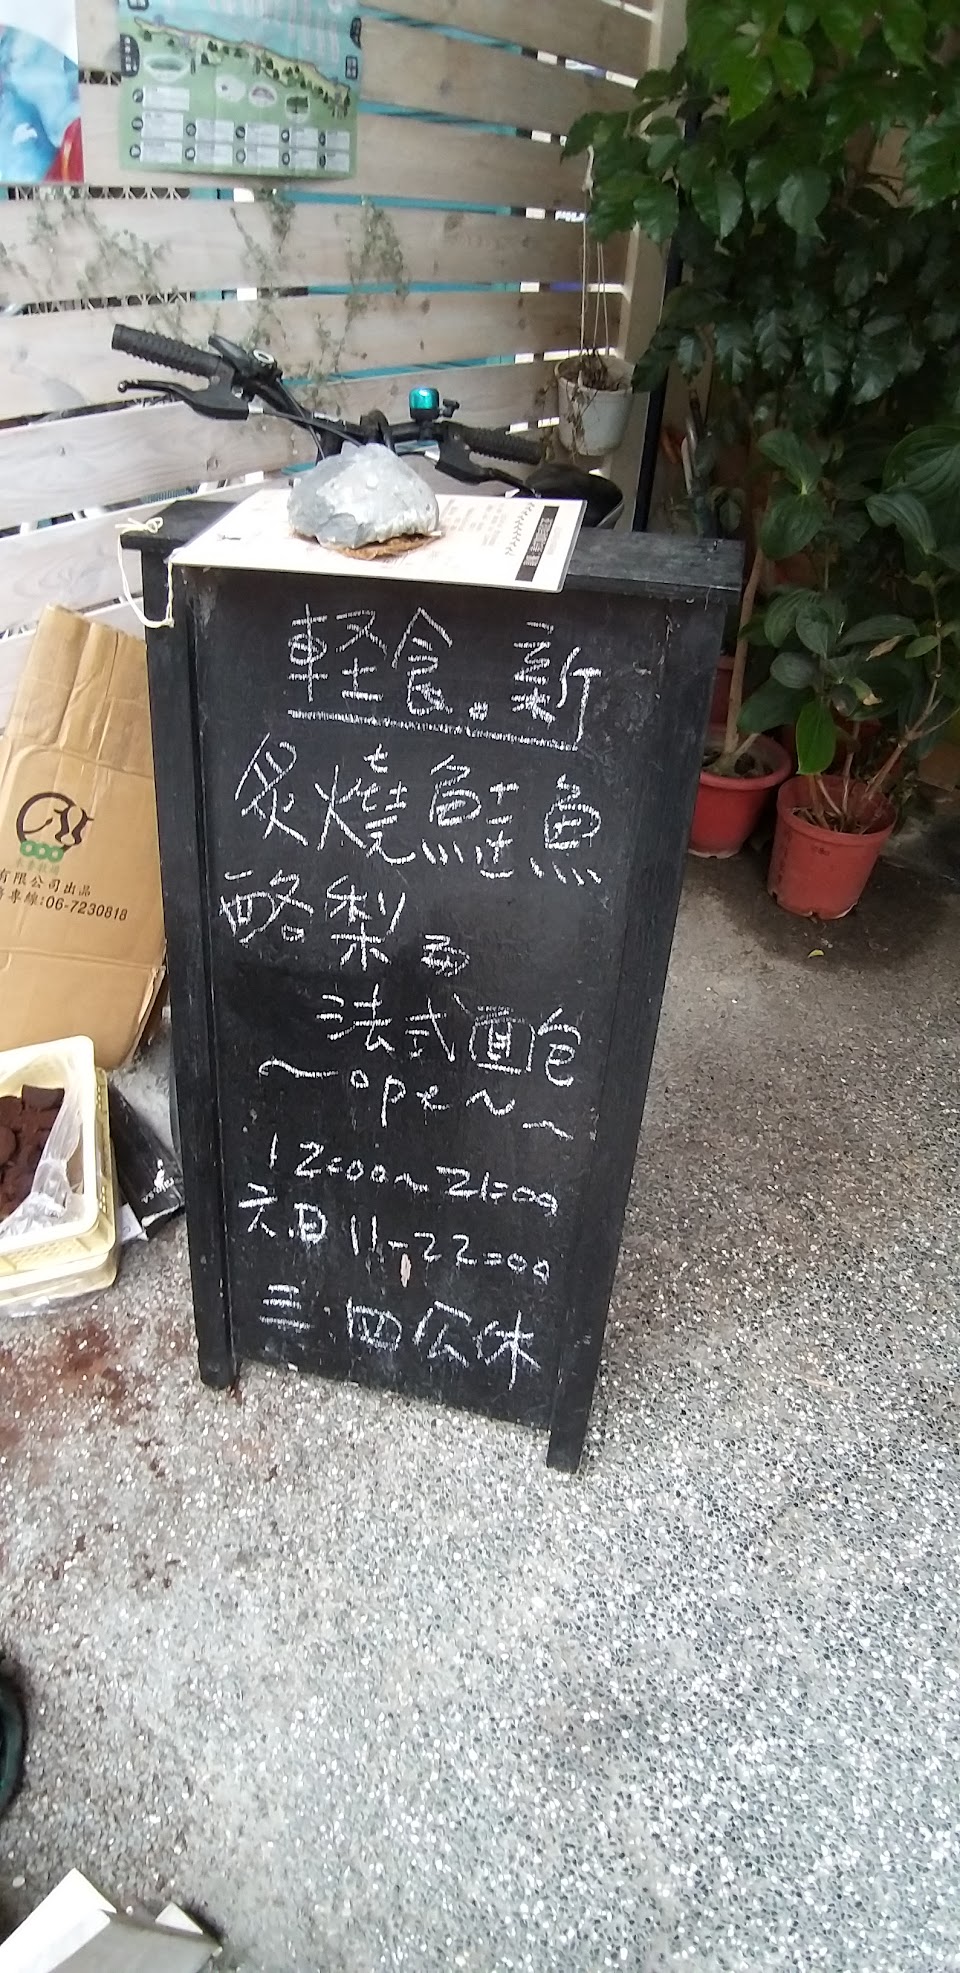 軽食。新
炙燒鮭魚
酪梨
法式面包
~open~
12:00~21:00
六.日 11-22:00
三.四公休
有限公司出品
專線:06-7230818